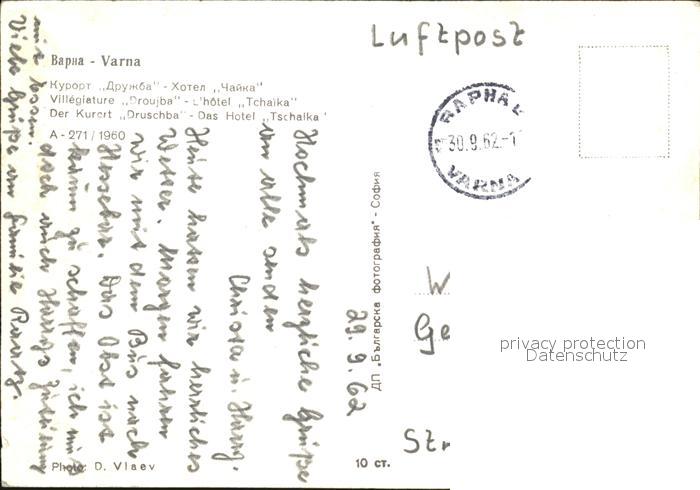 Варна - Varna
Курорт „Дружба" - Хотел „Чайка"
Villégiature „Droujba" - L'hôtel „Tchaïka"
Der Kurert „Druschba" - Das Hotel „Tschaika"
A - 271 / 1960
Luftpost
ВАРНА
30.9.62.-1
VARNA
29.9.62
Hochmals herzliche Grüße
an alle senden
Christa u. Harry.
Heute hatten wir herrliches
Wetter. Morgen fahren
wir mit dem Bus nach
Nessebar. Das Obst ist
kaum zu schaffen, ich muß
doch auch Harrys
mit essen.
Viele Grüße an Familie
ДП „Българска фотография" - София
W
Ge
Str
privacy protection
Datenschutz
Photo: D. Vlaev
10 ст.